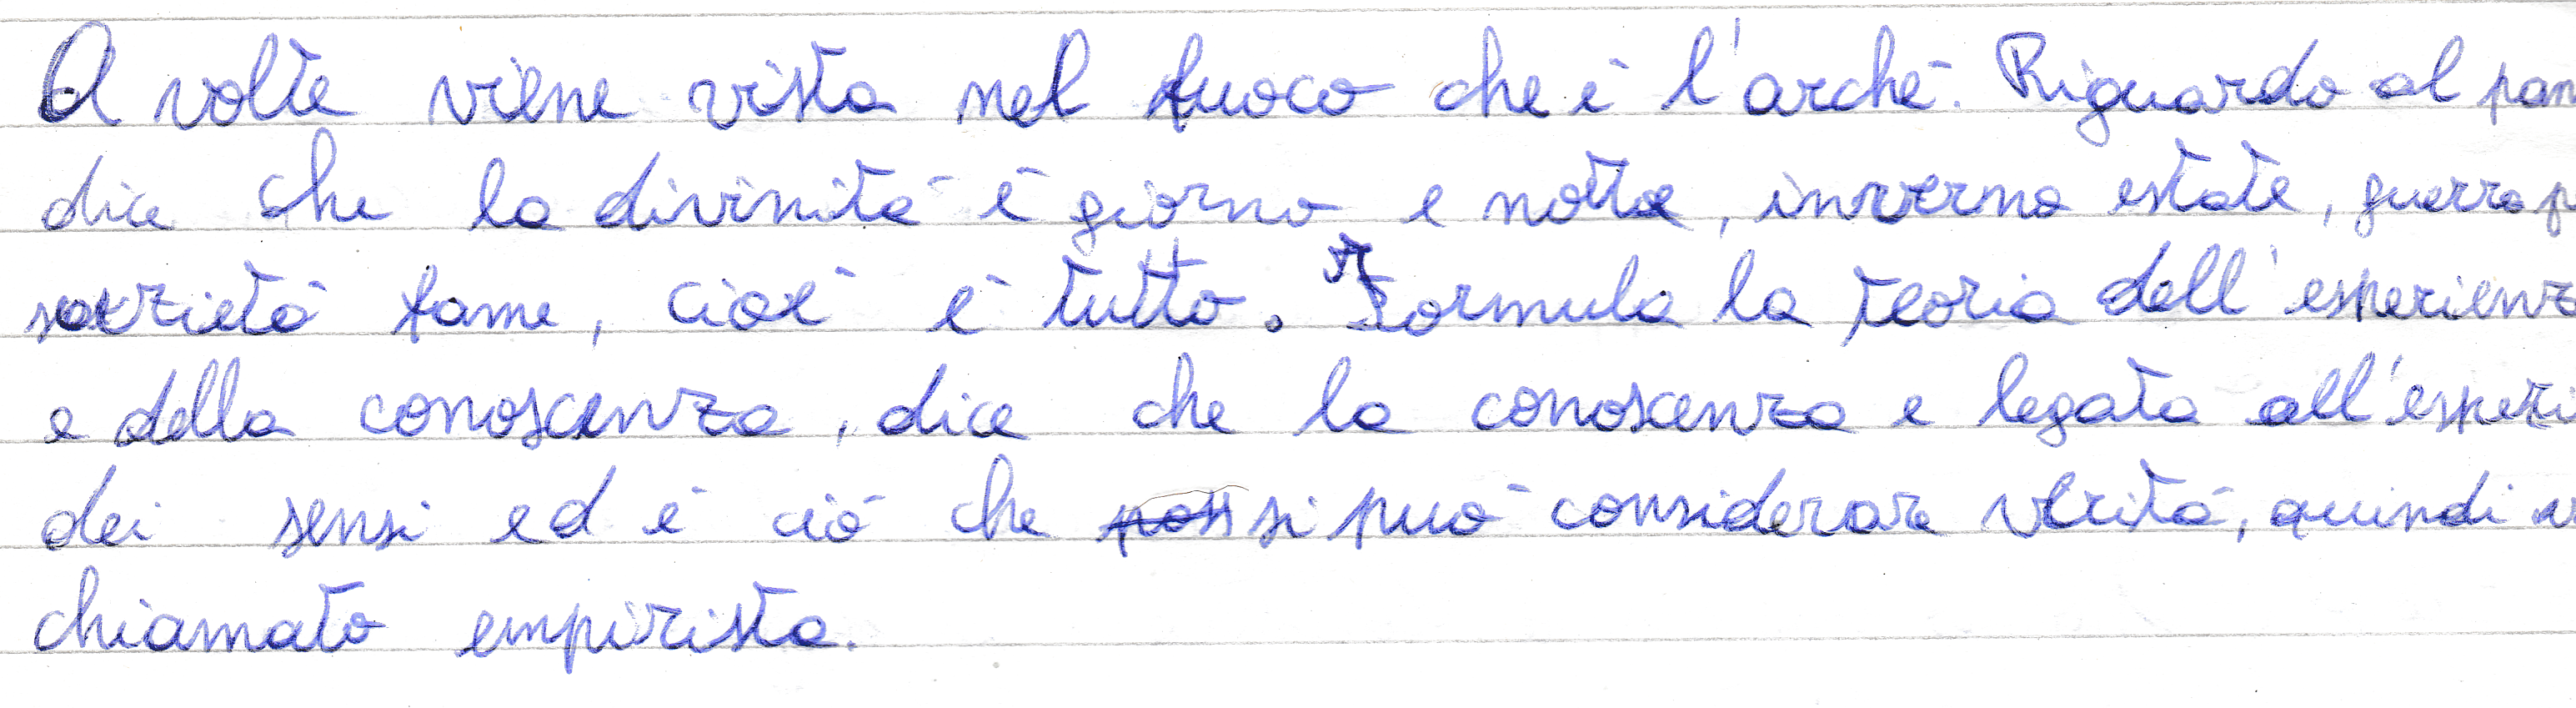 A volte viene vista nel fuoco che è l'archè. Riguardo al pan
dice che la divinità è giorno e notte, inverno estate, guerra p
sazietà fame, cioè è tutto. Formula la teoria dell'esperienz
e della conoscenza, dice che la conoscenza e legata all'esperi
dei sensi ed è ciò che si può considerare verità, quindi v
chiamato empirista.